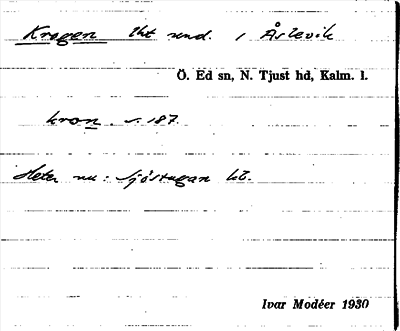 Krogen lht u̇nd. / Åslevik
Ö. Ed sn, N. Tjust hd, Kalm. l.
kron s. 187
Heter nu: Sjöstugan lt.
Ivar Modéer 1930